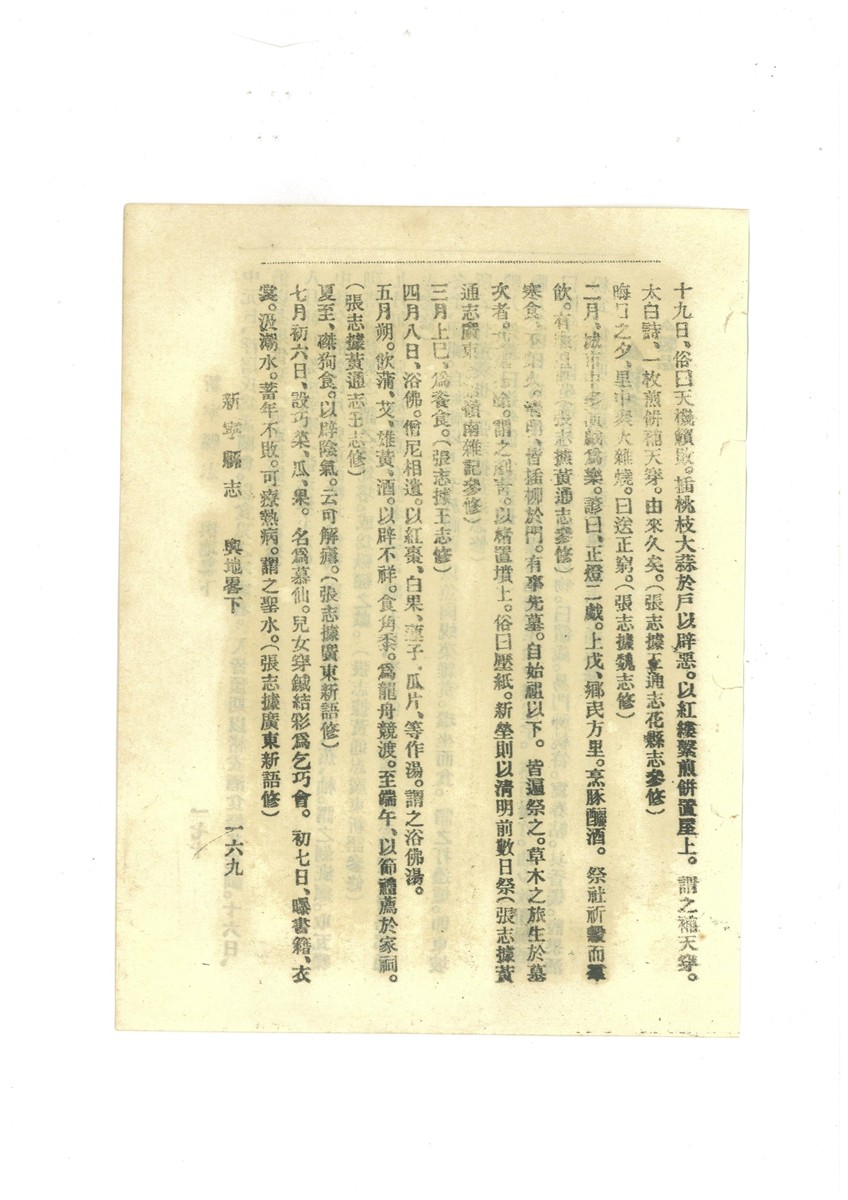 十九日、俗曰天機籟敗。插桃枝大蒜於戶以辟惡。以紅縷繫煎餅置屋上。謂之補天穿。
太白詩、一枚煎餅補天穿。由來久矣。(張志據王通志花縣志參修)
晦日之夕、里中爽火雜燒。曰送正窮。(張志據魏志修)
二月、城市中多演戲爲樂。諺曰、正燈二戲。上戊、鄉民方里。烹豚釃酒。祭社祈穀而羣
飲。有(張志據黃通志參修)
寒食、不火。清明、皆插柳於門。有事先墓。自始祖以下。皆遍祭之。草木之旅生於墓
次者。謂之。以楮置墳上。俗曰壓紙。新塋則以清明前數日祭(張志據黃
通志廣東嶺南雜記參修)
三月上巳、爲餐食。(張志據王志修)
四月八日、浴佛。僧尼相遺。以紅棗、白果、蓮子、瓜片、等作湯。謂之浴佛湯。
五月朔。飲蒲、艾、雄黃、酒。以辟不祥。食角黍。爲龍舟競渡。至端午、以節禮薦於家祠。
(張志據黃通志王志修)
夏至、磔狗食。以辟陰氣。云可解瘧。(張志據廣東新語修)
七月初六日、設巧菜、瓜、果。名爲慕仙。兒女穿鍼結彩爲乞巧會。初七日、曝書籍、衣
裳。汲潮水。蓄年不敗。可療熱病。謂之聖水。(張志據廣東新語修)
新寧縣志 輿地畧下 一六九